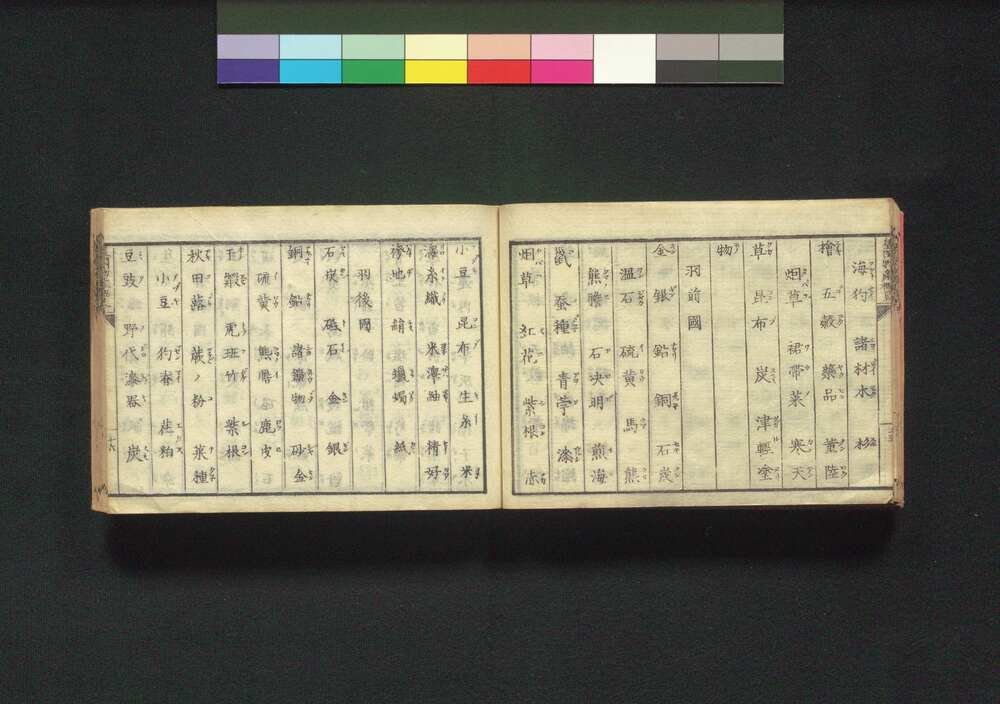 海狗 諸材木 杉
檜 五 藥品 薫陸
烟草 裙帯菜 寒天
草 昆布 炭 津輕塗
物
羽前國
金 銀 鉛 銅 石炭
温石 硫黄 馬 熊
熊膽 石决明 煎海
鼠 蚕種 青苧 漆
烟草 紅花 紫根 赤
小豆 昆布 生糸 米
濱糸織 米澤紬 精好
蠟蠋 紙
羽後國
石炭 砥石 金 銀
銅 鉛 諸鑛物 砂金
硫黄 熊膽 鹿皮
虎斑竹 紫根
秋田蕗 蕨ノ粉 菜種
小豆
豆豉 野代漆器 炭